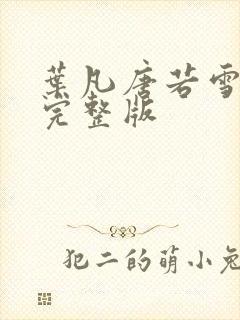 葉凡唐若雪
完整版
犯二的萌小兔